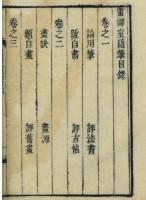 畫禪室隨筆目錄
卷之一
論用筆
評法書
跋自書
評古帖
卷之二
畫訣
畫源
題自畫
評舊畫
卷之三